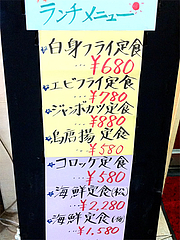 ランチメニュー
白身フライ定食
…¥680
エビフライ定食
…¥780
ジャンボカツ定食
…¥880
鳥唐揚定食
…¥580
コロッケ定食
…¥580
海鮮定食(松)
…¥2,280
海鮮定食(梅)
…¥1,580